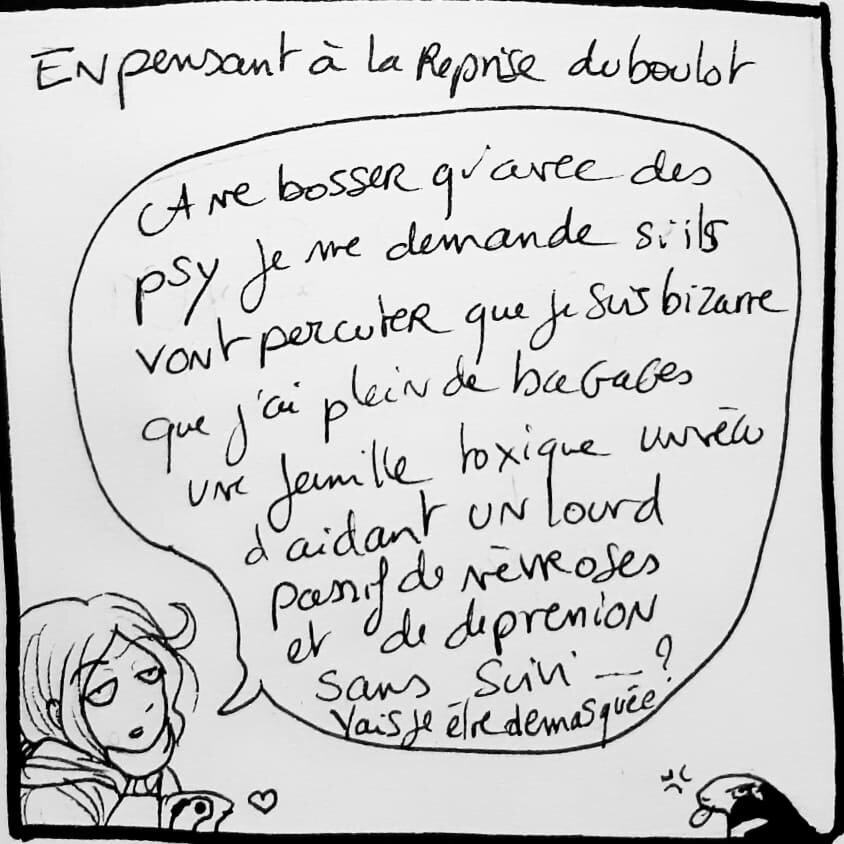 En pensant à la Reprise du boulot
A ne bosser qu'avec des
psy je me demande s'ils
vont percuter que je suis bizarre
que j'ai plein de bagages
une famille toxique un vécu
d'aidant un lourd
passif de névroses
et de depression
sans suivi _ ?
Vais je être demasquée